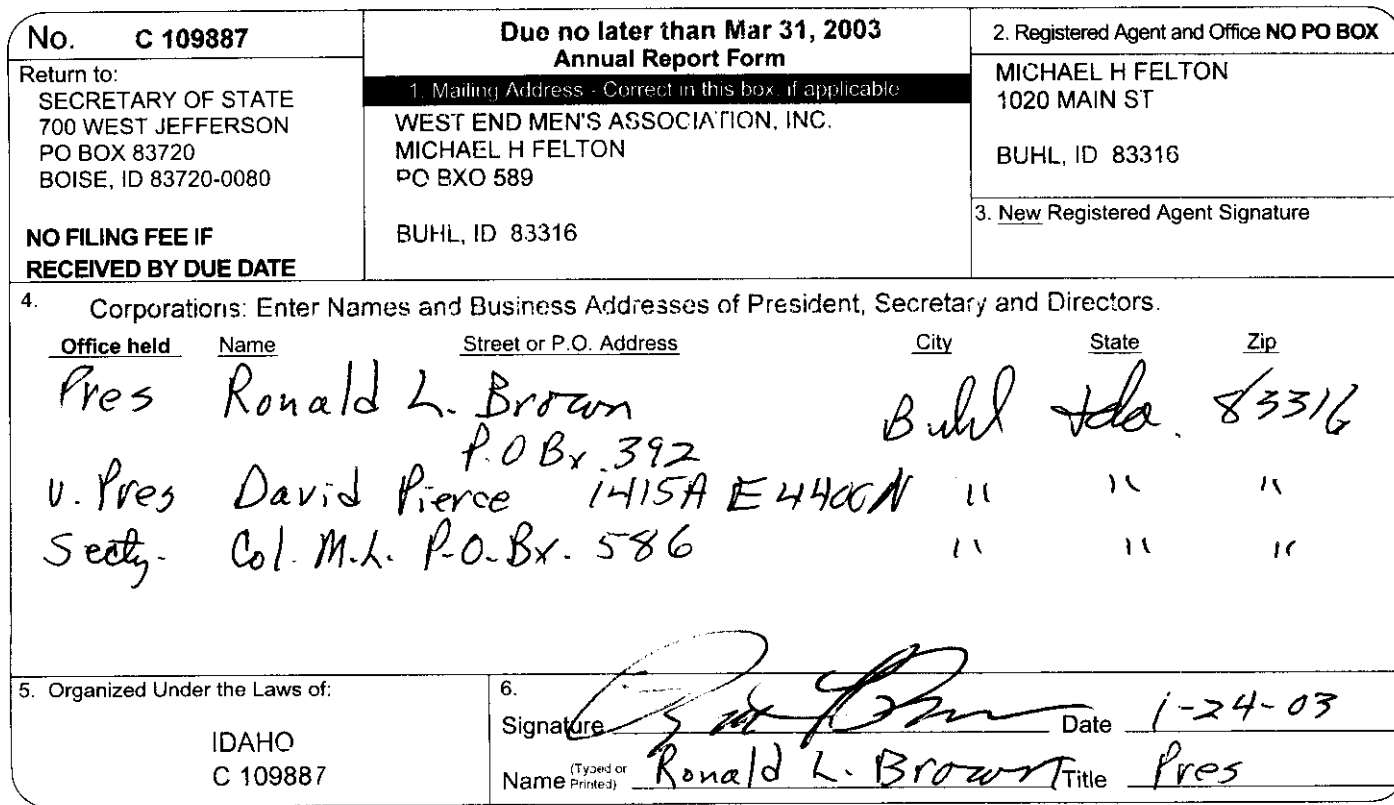 No. C 109887
Return to:
SECRETARY OF STATE
700 WEST JEFFERSON
PO BOX 83720
BOISE, ID 83720-0080
NO FILING FEE IF
RECEIVED BY DUE DATE
Due no later than Mar 31, 2003
Annual Report Form
1. Mailing Address - Correct in this box, if applicable
WEST END MEN'S ASSOCIATION, INC.
MICHAEL H FELTON
PO BXO 589
BUHL, ID 83316
2. Registered Agent and Office NO PO BOX
MICHAEL H FELTON
1020 MAIN ST
BUHL, ID 83316
3. New Registered Agent Signature
4. Corporations: Enter Names and Business Addresses of President, Secretary and Directors.
Office held Name Street or P.O. Address City State Zip
Pres Ronald L. Brown Buhl Ida. 83316
P.O Bx 392
V. Pres David Pierce 1415A E 4400N " " "
Secty. Col. M.L. P.O. Bx. 586 " " "
5. Organized Under the Laws of:
IDAHO
C 109887
6.
Signature Date 1-24-03
Name (Typed or Printed) Ronald L. Brown Title Pres